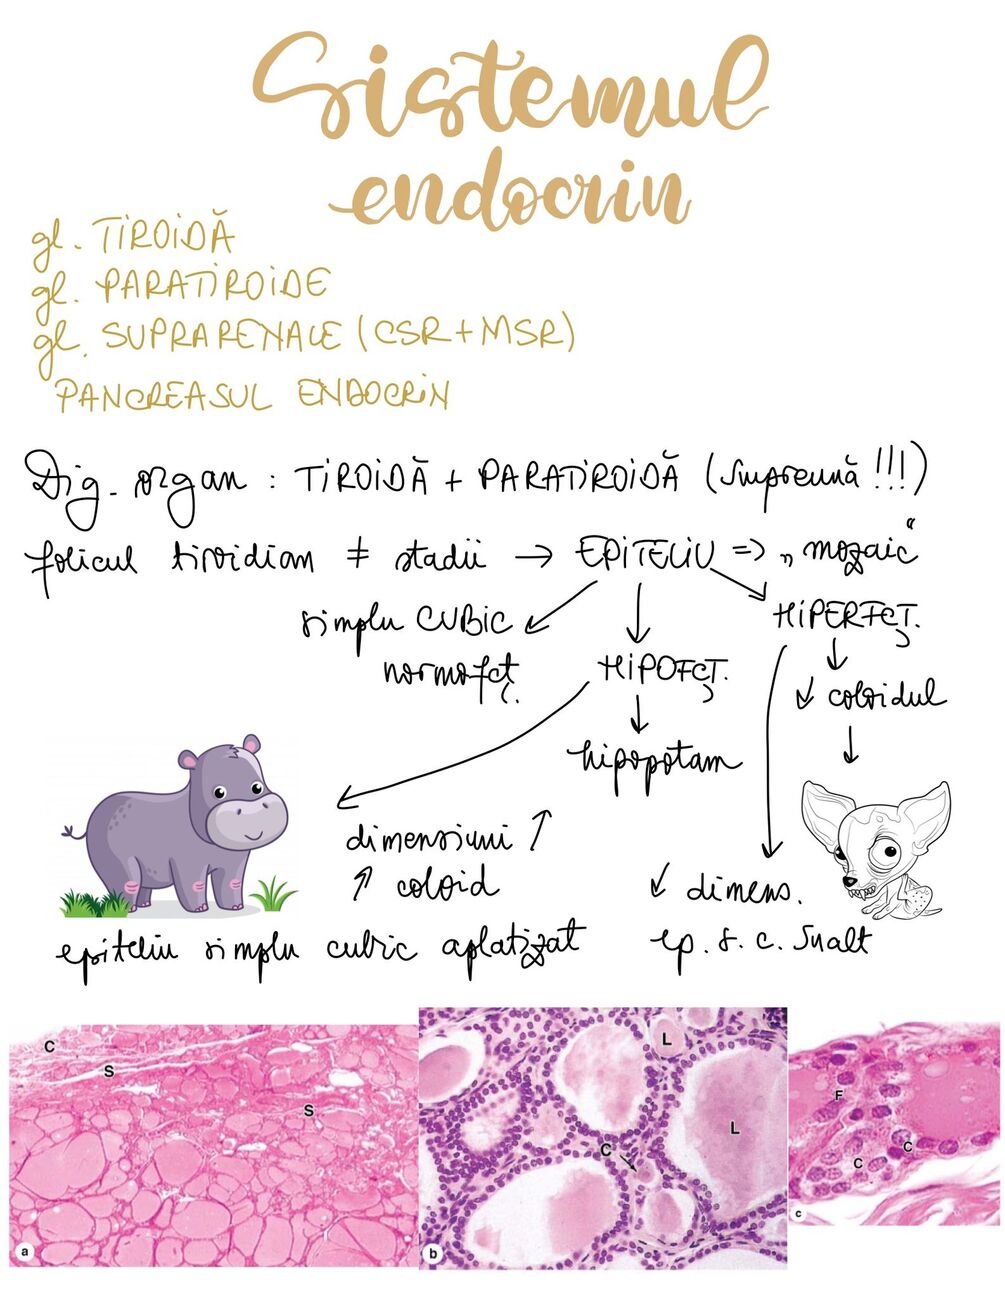 Sistemul
endocrin
gl. TIROIDĂ
gl. PARATIROIDE
gl. SUPRARENALE (CSR+MSR)
PANCREASUL ENDOCRIN
Dig. organ : TIROIDĂ + PARATIROIDĂ (împreună !!!)
folicul tiroidian ≠ stadii → EPITELIU => „mozaic“
simplu CUBIC
normofcț.
HIPOFCȚ.
HIPERFCȚ.
↓ coloidul
hipopotam
dimensiuni ↑
↑ coloid
↓ dimens.
epiteliu simplu cubic aplatizat
ep. s. c. înalt
C
S
S
a
L
L
C
b
F
C
C
c